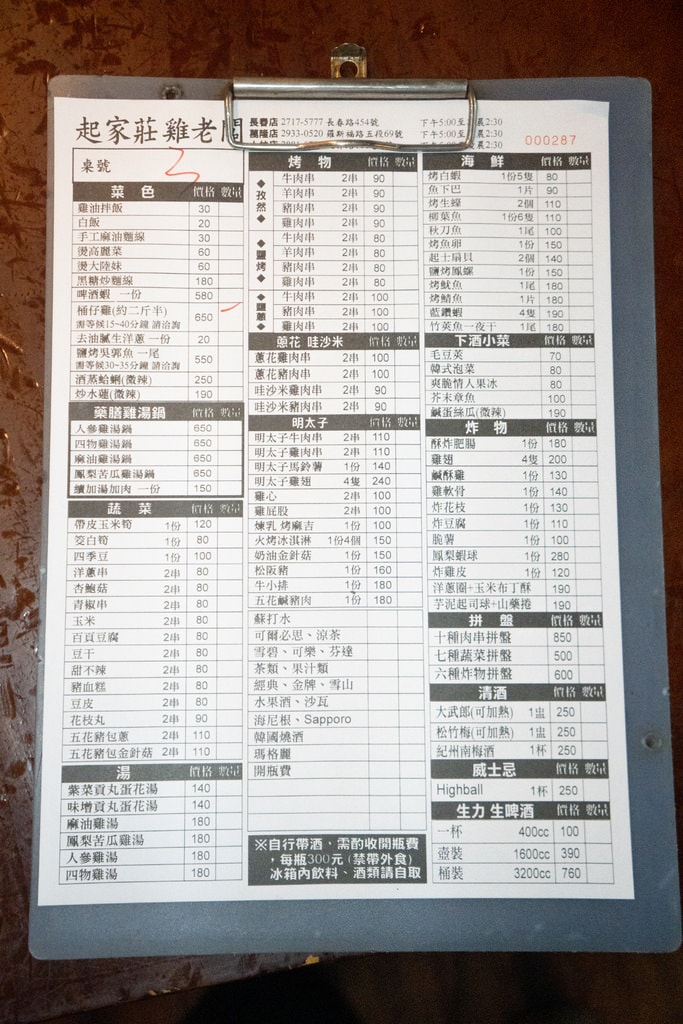 起家莊雞老闆
長春店 2717-5777 長春路454號 下午5:00至 晨2:30
萬隆店 2933-0520 羅斯福路五段69號 下午5:00至 晨2:30
000287
桌號 3
菜色 價格 數量
雞油拌飯 30
白飯 20
手工麻油麵線 30
燙高麗菜 60
燙大陸妹 60
黑糖炒麵線 180
啤酒蝦 一份 580
桶仔雞(約二斤半) 650
需等候15~40分鐘 請洽詢
去油膩生洋蔥 一份 20
鹽烤吳郭魚 一尾 550
需等候30~35分鐘 請洽詢
酒蒸蛤蜊(微辣) 250
炒水蓮(微辣) 190
藥膳雞湯鍋 價格 數量
人參雞湯鍋 650
四物雞湯鍋 650
麻油雞湯鍋 650
鳳梨苦瓜雞湯鍋 650
續加湯加肉 一份 150
蔬菜 價格 數量
帶皮玉米筍 1份 120
筊白筍 1份 80
四季豆 1份 100
洋蔥串 2串 80
杏鮑菇 2串 80
青椒串 2串 80
玉米 2串 80
百頁豆腐 2串 80
豆干 2串 80
甜不辣 2串 80
豬血糕 2串 80
豆皮 2串 80
花枝丸 2串 90
五花豬包蔥 2串 110
五花豬包金針菇 2串 110
湯 價格 數量
紫菜貢丸蛋花湯 140
味增貢丸蛋花湯 140
麻油雞湯 180
鳳梨苦瓜雞湯 180
人參雞湯 180
四物雞湯 180
烤物 價格 數量
◆孜然◆
牛肉串 2串 90
羊肉串 2串 90
豬肉串 2串 90
雞肉串 2串 90
◆鹽烤◆
牛肉串 2串 80
羊肉串 2串 80
豬肉串 2串 80
雞肉串 2串 80
牛肉串 2串 100
豬肉串 2串 100
雞肉串 2串 100
蔥花 哇沙米 價格 數量
蔥花雞肉串 2串 100
蔥花豬肉串 2串 100
哇沙米雞肉串 2串 90
哇沙米豬肉串 2串 90
明太子 價格 數量
明太子牛肉串 2串 110
明太子雞肉串 2串 110
明太子馬鈴薯 1份 140
明太子雞翅 4隻 240
雞心 2串 100
雞屁股 2串 100
煉乳 烤麻吉 1份 100
火烤冰淇淋 1份4個 150
奶油金針菇 1份 150
松阪豬 1份 160
牛小排 1份 180
五花鹹豬肉 1份 180
蘇打水
可爾必思、涼茶
雪碧、可樂、芬達
茶類、果汁類
經典、金牌、雪山
水果酒、沙瓦
海尼根、Sapporo
韓國燒酒
瑪格麗
開瓶費
※自行帶酒，需酌收開瓶費
，每瓶300元(禁帶外食)
冰箱內飲料、酒類請自取
海鮮 價格 數量
烤白蝦 1份5隻 80
魚下巴 1片 90
烤生蠔 2個 110
柳葉魚 1份6隻 110
秋刀魚 1尾 100
烤魚卵 1份 150
起士扇貝 2個 140
鹽烤鳳螺 1份 150
烤魷魚 1尾 180
烤鯖魚 1片 180
藍鑽蝦 4隻 190
竹筴魚一夜干 1尾 180
下酒小菜 價格 數量
毛豆莢 70
韓式泡菜 80
爽脆情人果冰 80
芥末章魚 100
鹹蛋絲瓜(微辣) 190
炸物 價格 數量
酥炸肥腸 1份 180
雞翅 4隻 200
鹹酥雞 1份 130
雞軟骨 1份 140
炸花枝 1份 130
炸豆腐 1份 110
脆薯 1份 100
鳳梨蝦球 1份 280
炸雞皮 1份 120
洋蔥圈+玉米布丁酥 190
芋泥起司球+山藥捲 190
拼盤 價格 數量
十種肉串拼盤 850
七種蔬菜拼盤 500
六種炸物拼盤 600
清酒 價格 數量
大武郎(可加熱) 1盅 250
松竹梅(可加熱) 1盅 250
紀州南梅酒 1杯 250
威士忌 價格 數量
Highball 1杯 250
生力 生啤酒 價格 數量
一杯 400cc 100
壺裝 1600cc 390
桶裝 3200cc 760